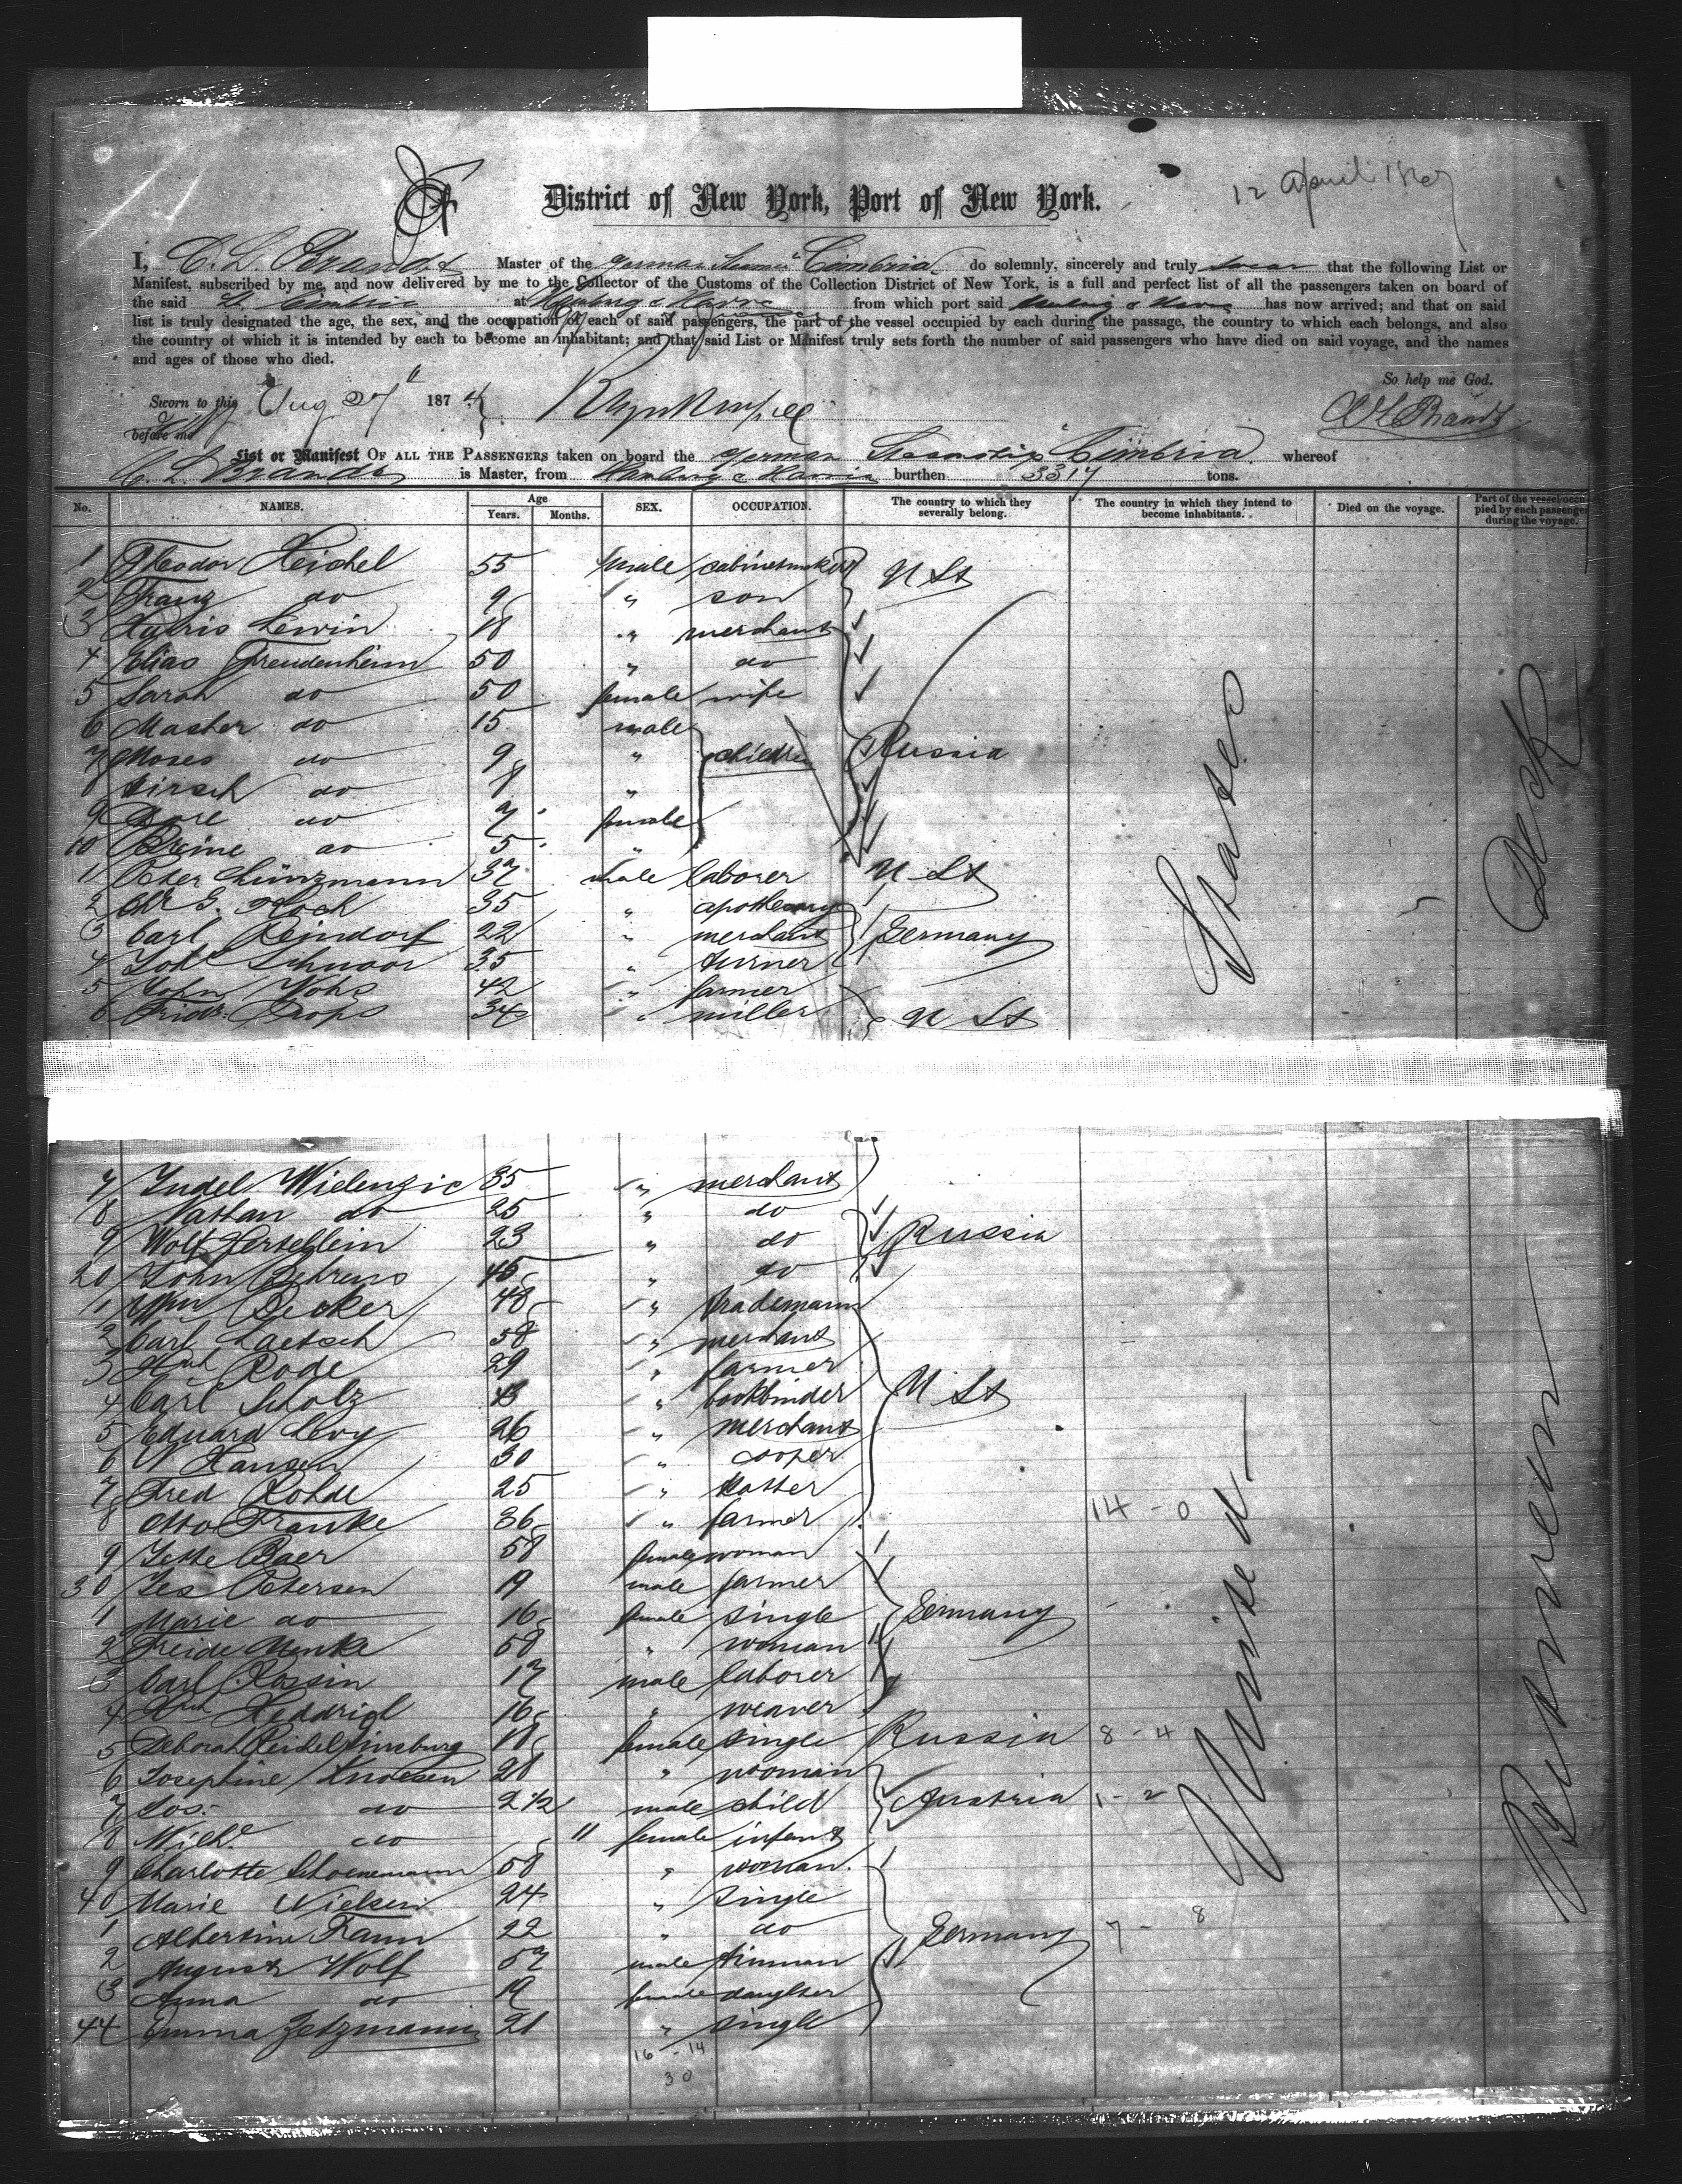 12 April 1869
District of New York, Port of New York.
I, C. L. Brandt Master of the German Steamer Cimbria do solemnly, sincerely and truly swear that the following List or
Manifest, subscribed by me, and now delivered by me to the Collector of the Customs of the Collection District of New York, is a full and perfect list of all the passengers taken on board of
the said St. Cimbria at Hamburg & Havre from which port said Hamburg & Havre has now arrived; and that on said
list is truly designated the age, the sex, and the occupation of each of said passengers, the part of the vessel occupied by each during the passage, the country to which each belongs, and also
the country of which it is intended by each to become an inhabitant; and that said List or Manifest truly sets forth the number of said passengers who have died on said voyage, and the names
and ages of those who died.
So help me God.
Sworn to this Aug 27 1874 CL Brandt
before me
List or Manifest OF ALL THE PASSENGERS taken on board the German Steamship Cimbria whereof
C. L. Brandt is Master, from Hamburg & Havre burthen 3317 tons.
No. NAMES. Age Years. Months. SEX. OCCUPATION. The country to which they severally belong. The country in which they intend to become inhabitants. Died on the voyage. Part of the vessel occupied by each passenger during the voyage.
1 Theodor Heichel 55 male cabinetmaker U St
2 Franz do 9 " son
3 Harris Lewin 18 " merchant
4 Elias Freudenheim 50 " do
5 Sarah do 50 female wife
6 Mascher do 15 male
7 Moses do 9 " children Russia
8 Hirsch do 8 "
9 Dore do 7 female
10 Reine do 5 "
1 Peter Lünzmann 37 male laborer U St
2 Chr. G. Koch 35 " apothecary
3 Carl Reindorf 22 " merchant Germany
4 Joh. Schnoor 35 " turner
5 John Vohs 42 " farmer
6 Fridr. Props 34 " miller U St
7 Judel Wielenzic 35 " merchant
8 Nathan do 25 " do
9 Wolf Hersellein 23 " do Russia
20 John Behrens 45 " do
1 Wm Decker 48 " trademann
2 Carl Laetsch 58 " merchant
3 Hnch Rode 29 " farmer
4 Carl Scholz 43 " bookbinder U St
5 Eduard Levy 26 " merchant
6 N Hansen 30 " cooper
7 Fred Rohde 25 " hatter
8 Otto Franke 36 " farmer 14 - 0
9 Jette Baer 58 female woman
30 Jes Petersen 19 male farmer
1 Marie do 16 female single Germany
2 Freide Menke 58 " woman
3 Carl Rossin 17 male laborer
4 Hnch Heddrigl 16 " weaver
5 Deborah Reidel Ginsburg 18 female single Russia 8 - 4
6 Josephine Knoesen 28 " woman
7 Jos. do 2 1/2 male child Austria 1 - 2
8 Wilh. do 11 female infant
9 Charlotte Schoenemann 58 " woman
40 Marie Nielsen 24 " single
1 Albertine Frann 22 " do Germany 7 - 8
2 August Wolf 57 male tinman
3 Anna do 19 female daughter
44 Emma Zetzmann 21 " single
16 - 14
30
United States
Between Deck